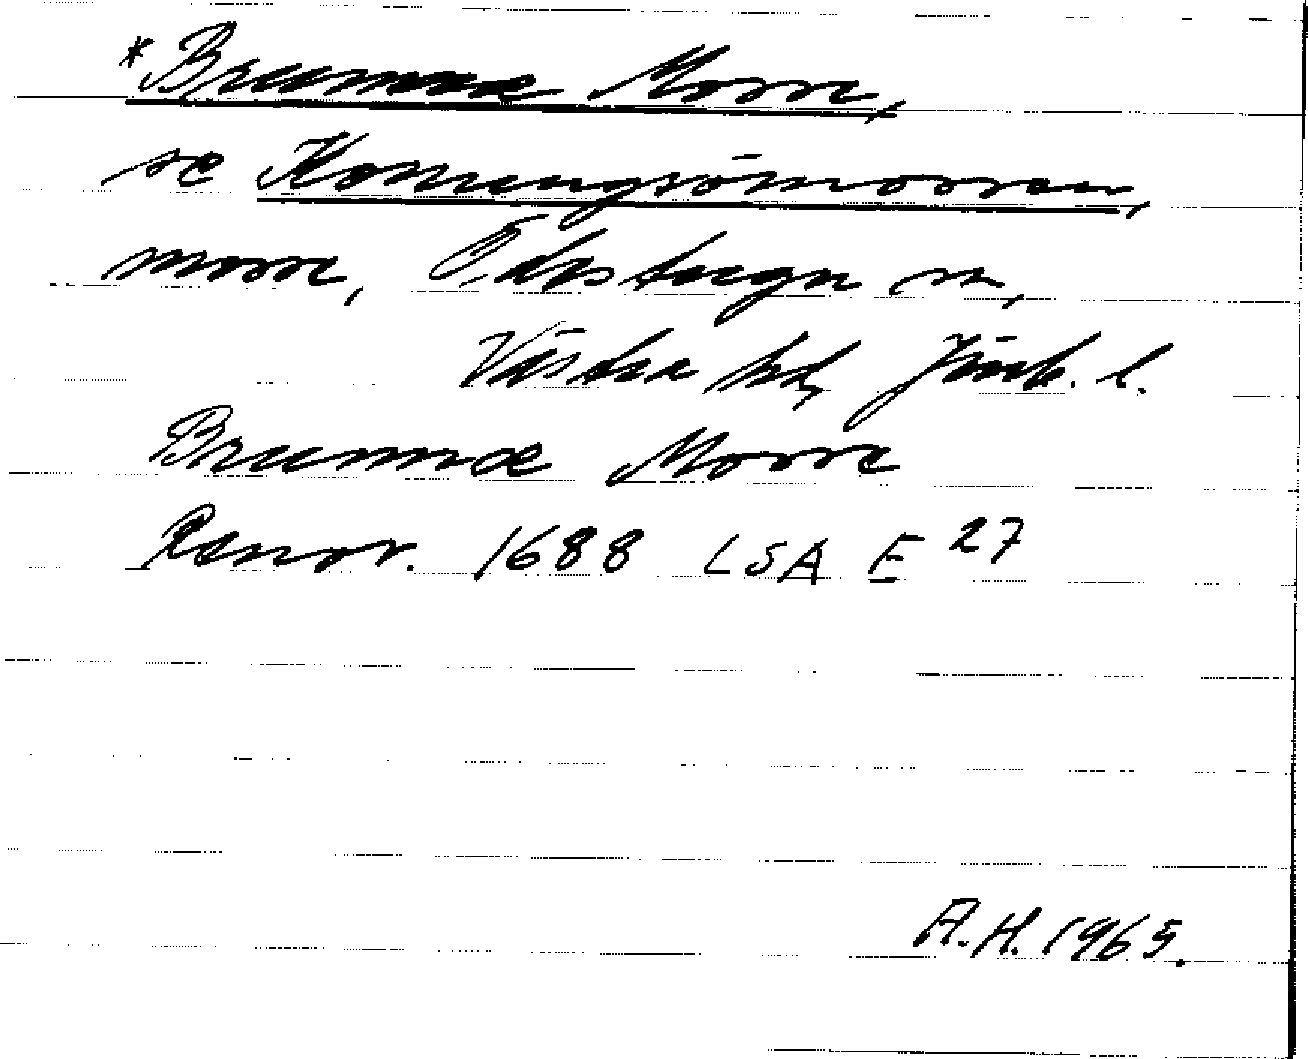 *Brunnæ Morre,
se Konungsömossen,
mosse, Ödestugu sn,
Västra hd, Jönk. l.
Brunnæ Morre
Renov. 1688 LSA E 27
A.H. 1965.